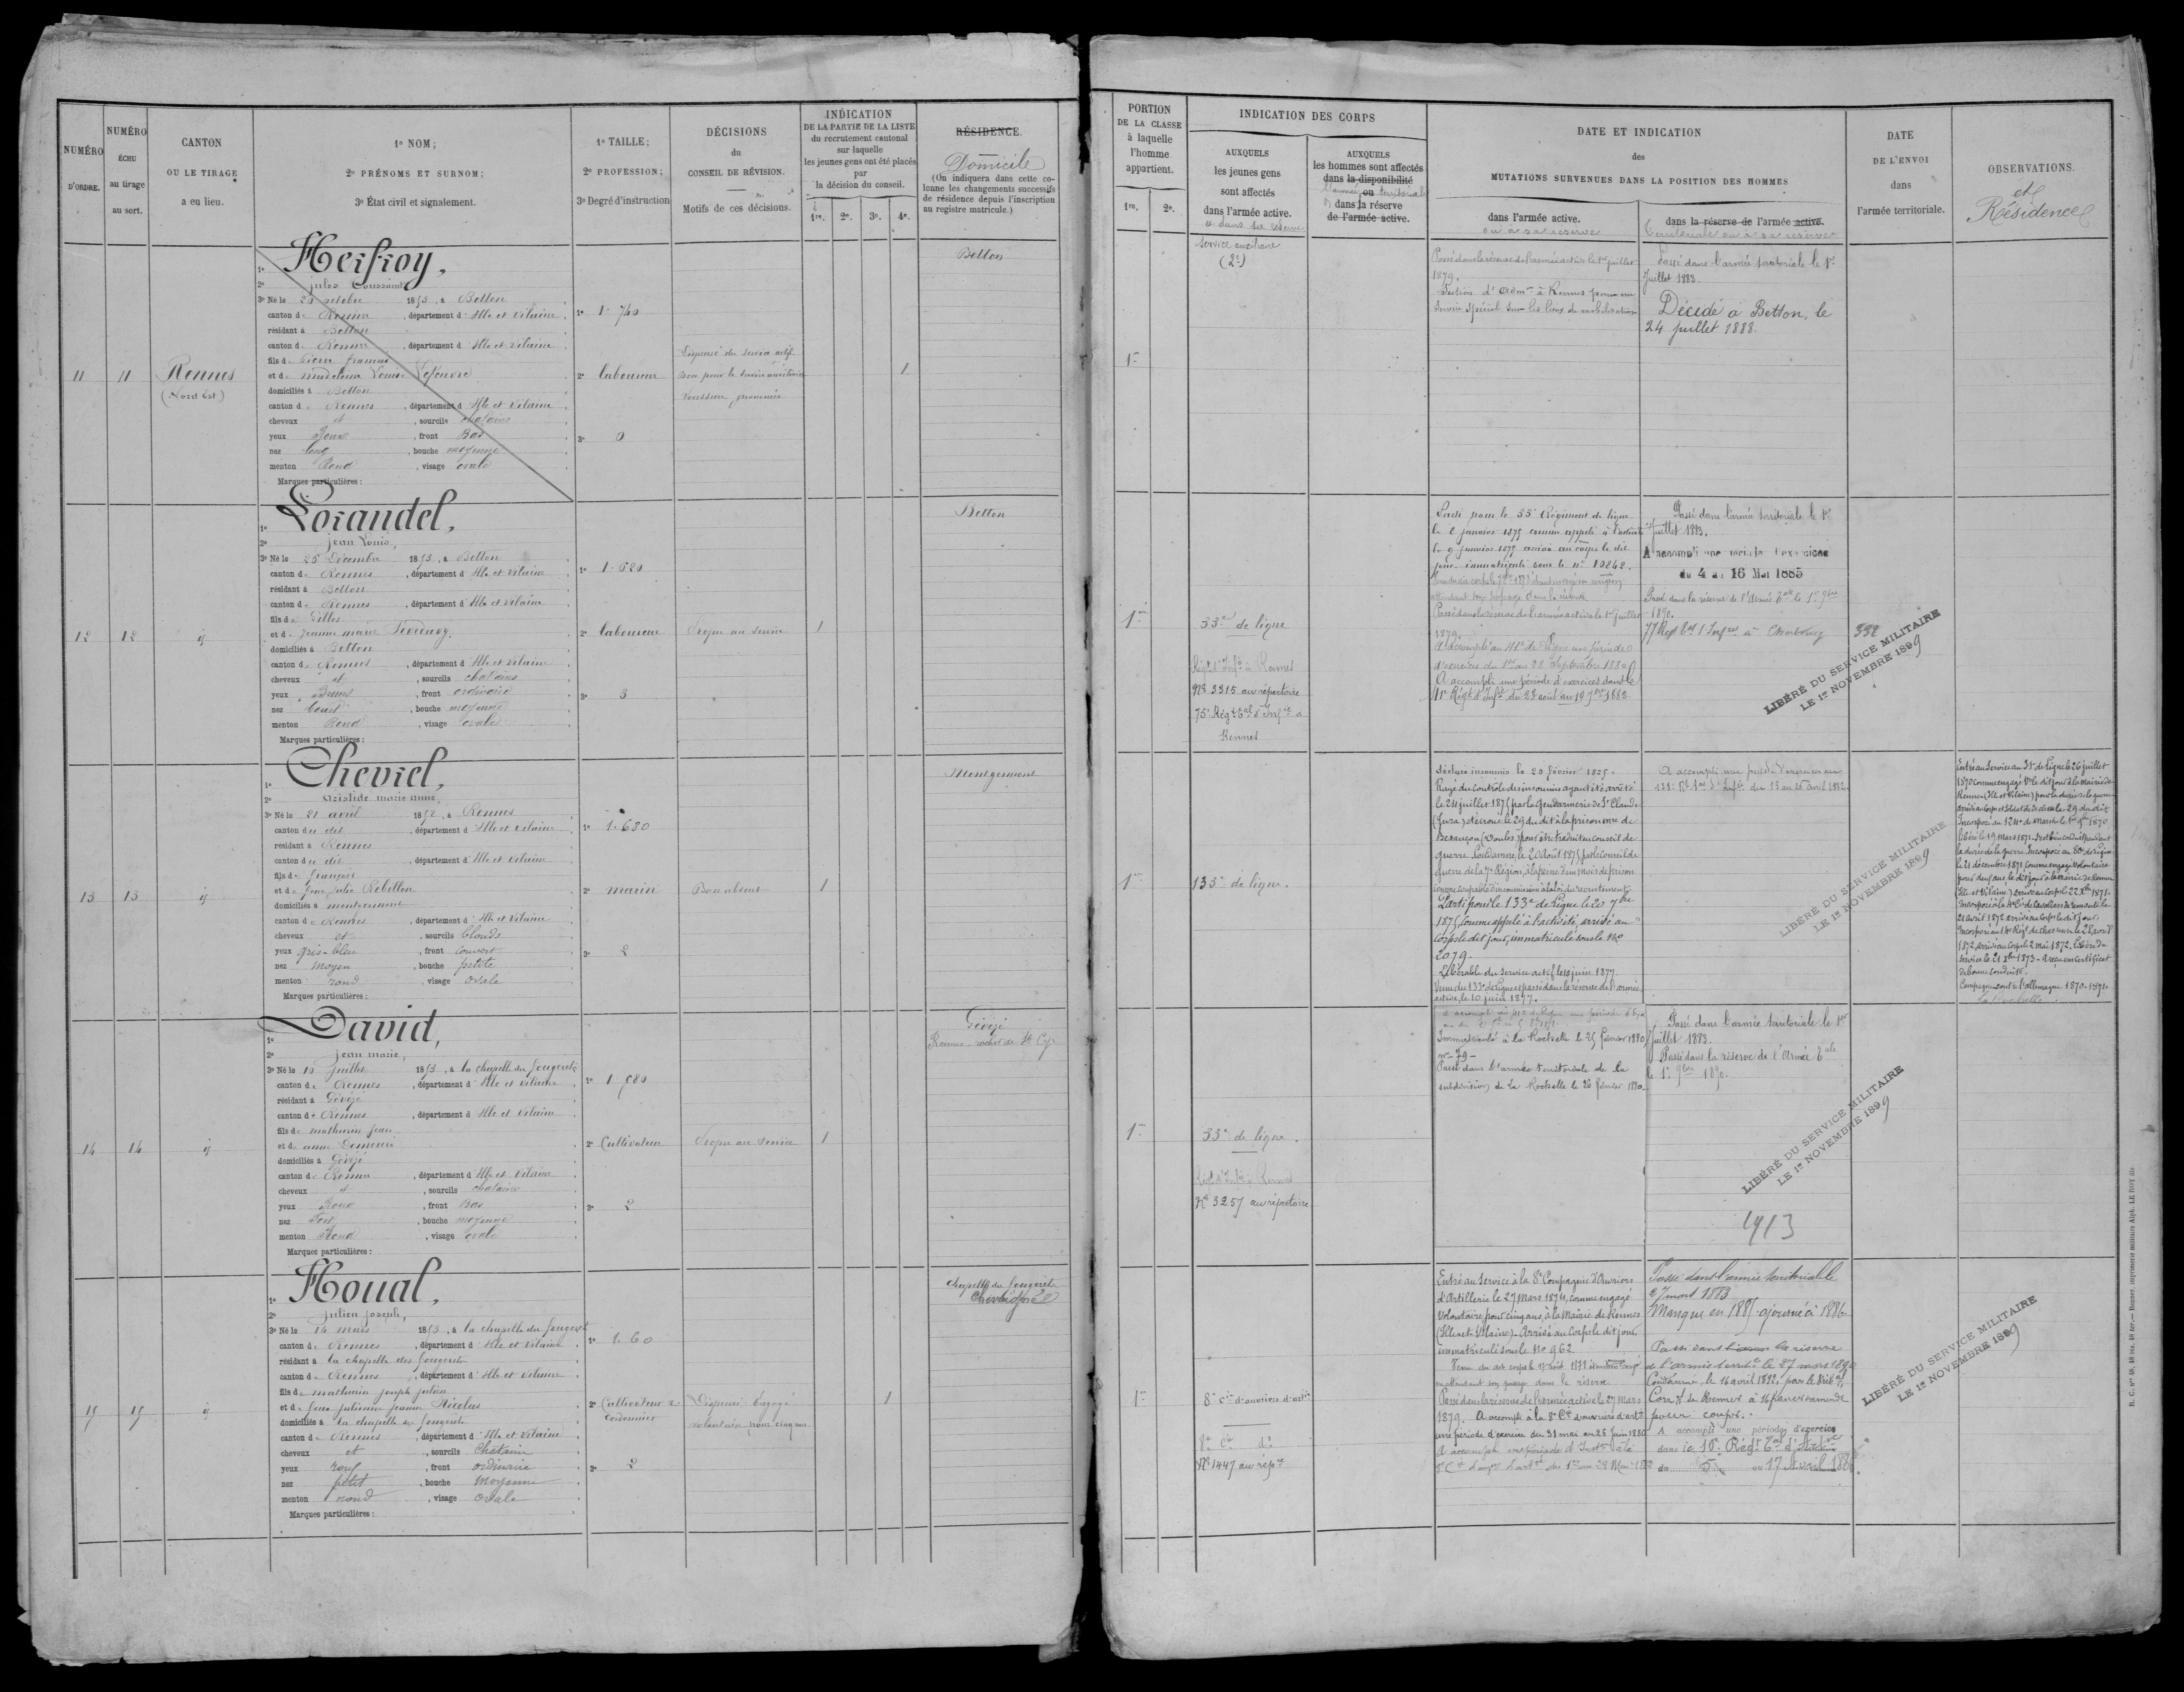 NUMÉRO
D'ORDRE.
NUMÉRO
ÉCHU
au tirage
au sort.
CANTON
OU LE TIRAGE
a eu lieu.
1o NOM;
2o PRÉNOMS ET SURNOM;
3o État civil et signalement.
1o TAILLE;
2o PROFESSION;
3o Degré d'instruction
DÉCISIONS
du
CONSEIL DE RÉVISION.
Motifs de ces décisions.
INDICATION
DE LA PARTIE DE LA LISTE
du recrutement cantonal
sur laquelle
les jeunes gens ont été placés
par
la décision du conseil.
1re. 2e. 3e. 4e.
RÉSIDENCE.
Domicile
(On indiquera dans cette co-
lonne les changements successifs
de résidence depuis l'inscription
au registre matricule.)
11
11
Rennes
(Nord Est)
1o Herfroy,
2o Jules Toussaint
3o Né le 29 octobre 1853, à Betton
canton de Rennes, département d'Ille et Vilaine
résidant à Betton
canton de Rennes, département d'Ille et Vilaine
fils de Pierre François
et de Madeleine Louise Lefeuvre
domiciliés à Betton
canton de Rennes, département d'Ille et Vilaine
cheveux et, sourcils chatains
yeux Roux, front Bas
nez long, bouche moyenne
menton Rond, visage ovale
Marques particulières :
1o 1.740
2o laboureur
3o 0
Dispensé du service actif
Bon pour le service auxiliaire
1
Betton
12
12
id
1o Lorandel,
2o Jean Louis,
3o Né le 25 Décembre 1853, à Betton
canton de Rennes, département d'Ille et Vilaine
résidant à Betton
canton de Rennes, département d'Ille et Vilaine
fils de Gilles
et de Jeanne Marie
domiciliés à Betton
canton de Rennes, département d'Ille et Vilaine
cheveux et, sourcils chatains
yeux Bruns, front ordinaire
nez Court, bouche moyenne
menton Rond, visage ovale
Marques particulières :
1o 1.620
2o laboureur
3o 3
Propre au service
1
Betton
13
13
id
1o Cheviel,
2o Aristide Marie Anne,
3o Né le 21 avril 1852, à Rennes
canton du dit, département d'Ille et Vilaine
résidant à Rennes
canton du dit, département d'Ille et Vilaine
fils de François
et de feue Julie Rebillon
domiciliés à Montgermont
canton de Rennes, département d'Ille et Vilaine
cheveux et, sourcils blonds
yeux gris-bleu, front couvert
nez moyen, bouche petite
menton rond, visage ovale
Marques particulières :
1o 1.680
2o marin
3o 2
Bon absent
1
Montgermont
14
14
id
1o David,
2o Jean Marie,
3o Né le 10 juillet 1853, à la chapelle des fougeretz
canton de Rennes, département d'Ille et Vilaine
résidant à Gévezé
canton de Rennes, département d'Ille et Vilaine
fils de Mathurin Jean
et de Anne
domiciliés à Gévezé
canton de Rennes, département d'Ille et Vilaine
cheveux et, sourcils chatains
yeux Roux, front Bas
nez Fort, bouche moyenne
menton Rond, visage ovale
Marques particulières :
1o 1.580
2o Cultivateur
3o 2
Propre au service
1
Gévezé
Rennes St Cyr
15
15
id
1o Houal,
2o Julien Joseph,
3o Né le 14 mars 1853, à la chapelle des fougeretz
canton de Rennes, département d'Ille et Vilaine
résidant à la chapelle des fougeretz
canton de Rennes, département d'Ille et Vilaine
fils de Mathurin Joseph Julien
et de feue Julienne Jeanne Nicolas
domiciliés à la chapelle des fougeretz
canton de Rennes, département d'Ille et Vilaine
cheveux et, sourcils Chatains
yeux roux, front ordinaire
nez petit, bouche Moyenne
menton rond, visage Ovale
Marques particulières :
1o 1.60
2o Cultivateur &
Cordonnier
3o 2
Dispensé Engagé
volontaire pour cinq ans
1
Chapelle des fougeretz
Chevaigné
PORTION
DE LA CLASSE
à laquelle
l'homme
appartient.
1re. 2e.
INDICATION DES CORPS
AUXQUELS
les jeunes gens
sont affectés
dans l'armée active.
et dans sa réserve
AUXQUELS
les hommes sont affectés
dans la disponibilité
l'armée ou territoriale
dans la réserve
de l'armée active.
DATE ET INDICATION
des
MUTATIONS SURVENUES DANS LA POSITION DES HOMMES
dans l'armée active.
ou à sa réserve
dans la réserve de l'armée active.
territoriale ou à sa réserve
DATE
DE L'ENVOI
dans
l'armée territoriale.
OBSERVATIONS.
et
Résidence
1re
Service auxiliaire
(2e)
Passé dans la réserve de l'armée active le 1er juillet
1879.
Section d'Adm on à Rennes pour un
Service Spécial sur les lieux de mobilisation
Passé dans l'armée territoriale le 1er
Juillet 1883.
Décédé à Betton, le
24 juillet 1888.
1re
33e de ligne
Régt d'Infie à Rennes
No 3315 au répertoire
75e Régt Tal d'Infie à
Rennes
Parti pour le 33e Régiment de ligne
le 2 janvier 1875 comme appelé à l'activité
le 9 janvier 1875 arrivé au corps le dit
jour immatriculé sous le no 10842.
attendant son passage dans la réserve
Passé dans la réserve de l'armée active le 1er juillet
1879.
A accompli au 41e de Ligne une période
d'exercices du 1er au 28 Septembre 1880
A accompli une période d'exercices dans le
41e Régt d'Infie du 23 août au 19 7bre 1882
Passé dans l'armée territoriale le 1er
Juillet 1883.
A accompli une période d'exercices
du 4 au 16 Mai 1885
Passé dans la réserve de l'Armée Tale le 1er 9bre
1890.
77 Regt Tal d'Infie à Cherbourg
332
LIBÉRÉ DU SERVICE MILITAIRE
LE 1er NOVEMBRE 1899
1re
133e de ligne.
Déclaré insoumis le 20 février 1875.
Rayé du contrôle des insoumis ayant été arrêté
le 24 juillet 1875 par la Gendarmerie de St Claude
(Jura) et écroué le 29 du dit à la prison mre de
Besançon (Doubs) pour être traduit en conseil de
guerre. Condamné le 20 Août 1875 par le Conseil de
guerre de la 7e Région, à la peine d'un mois de prison
comme coupable d'insoumission à la loi du recrutement
Parti pour le 133e de Ligne le 20 7bre
1875 comme appelé à l'activité, arrivé au
Corps le dit jour, immatriculé sous le No
2079.
Libérable du service actif le 10 juin 1877
Venu du 133e de Ligne et passé dans la réserve de l'armée
active, le 10 juin 1877.
A accompli une période d'exercices au
du 13 au 25 avril 1882
LIBÉRÉ DU SERVICE MILITAIRE
LE 1er NOVEMBRE 1899
Entré au Service au 31e de Ligne le 26 juillet
1870 comme engagé Vre le dit jour à la mairie de
Rennes (Ille et Vilaine) pour la durée de la guerre
Incorporé au 124e de Marche le 1er 9bre 1870
libéré le 19 mars 1871.
la durée de la guerre. Incorporé au 80e de Ligne
le 21 décembre 1871 comme engagé volontaire
pour deux ans, le dit jour à la mairie de Rennes
(Ille et Vilaine) arrivé au Corps le 22 Xbre 1871.
Incorporé à la 4e Cie de Cavaliers de remonte le
21 avril 1872 arrivé au Corps le dit jour.
Incorporé au Régt de chasseurs le 28 avril
1872, arrivé au Corps le 2 mai 1872. Libéré du
Service le 21 Xbre 1873 - A reçu un Certificat
de bonne conduite.
Campagne contre l'allemagne 1870-1871.
La Rochelle
1re
33e de ligne.
Régt d'Infie à Rennes
No 3257 au répertoire
Immatriculé à la Rochelle le 25 février 1880
no - 79 -
Passé dans l'armée territoriale de la
subdivision de La Rochelle le 26 février 1880
Passé dans l'armée territoriale le 1er
Juillet 1883.
Passé dans la réserve de l'Armée Tale
le 1er 9bre 1890.
LIBÉRÉ DU SERVICE MILITAIRE
LE 1er NOVEMBRE 1899
1413
1re
8e Cie d'ouvriers d'artie
8e Cie do
No 1447 au répre
Entré au Service à la 8e Compagnie d'Ouvriers
d'Artillerie le 27 Mars 1874, comme engagé
Volontaire pour cinq ans, à la Mairie de Rennes
(Ille et Vilaine) - Arrivé au Corps le dit jour,
immatriculé sous le No 962
en attendant son passage dans la réserve
Passé dans la réserve de l'armée active le 27 Mars
1879. A accompli à la 8e Cie d'ouvriers d'artie
une période d'exercices du 31 mai au 26 juin 1880
Passé dans l'armée territoriale
27 mars 1883
Manque en 1885 ajourné à 1886
Passé dans la réserve
de l'armée territle le 27 mars 1890
Condamné, le 16 avril 1892, par le Tribal
Correl de Rennes à 16 francs d'amende
pour coups.
A accompli une période d'exercice
dans le 10e Régt Tal d'Artie
du 5 au 17 Avril 1886
LIBÉRÉ DU SERVICE MILITAIRE
LE 1er NOVEMBRE 1899